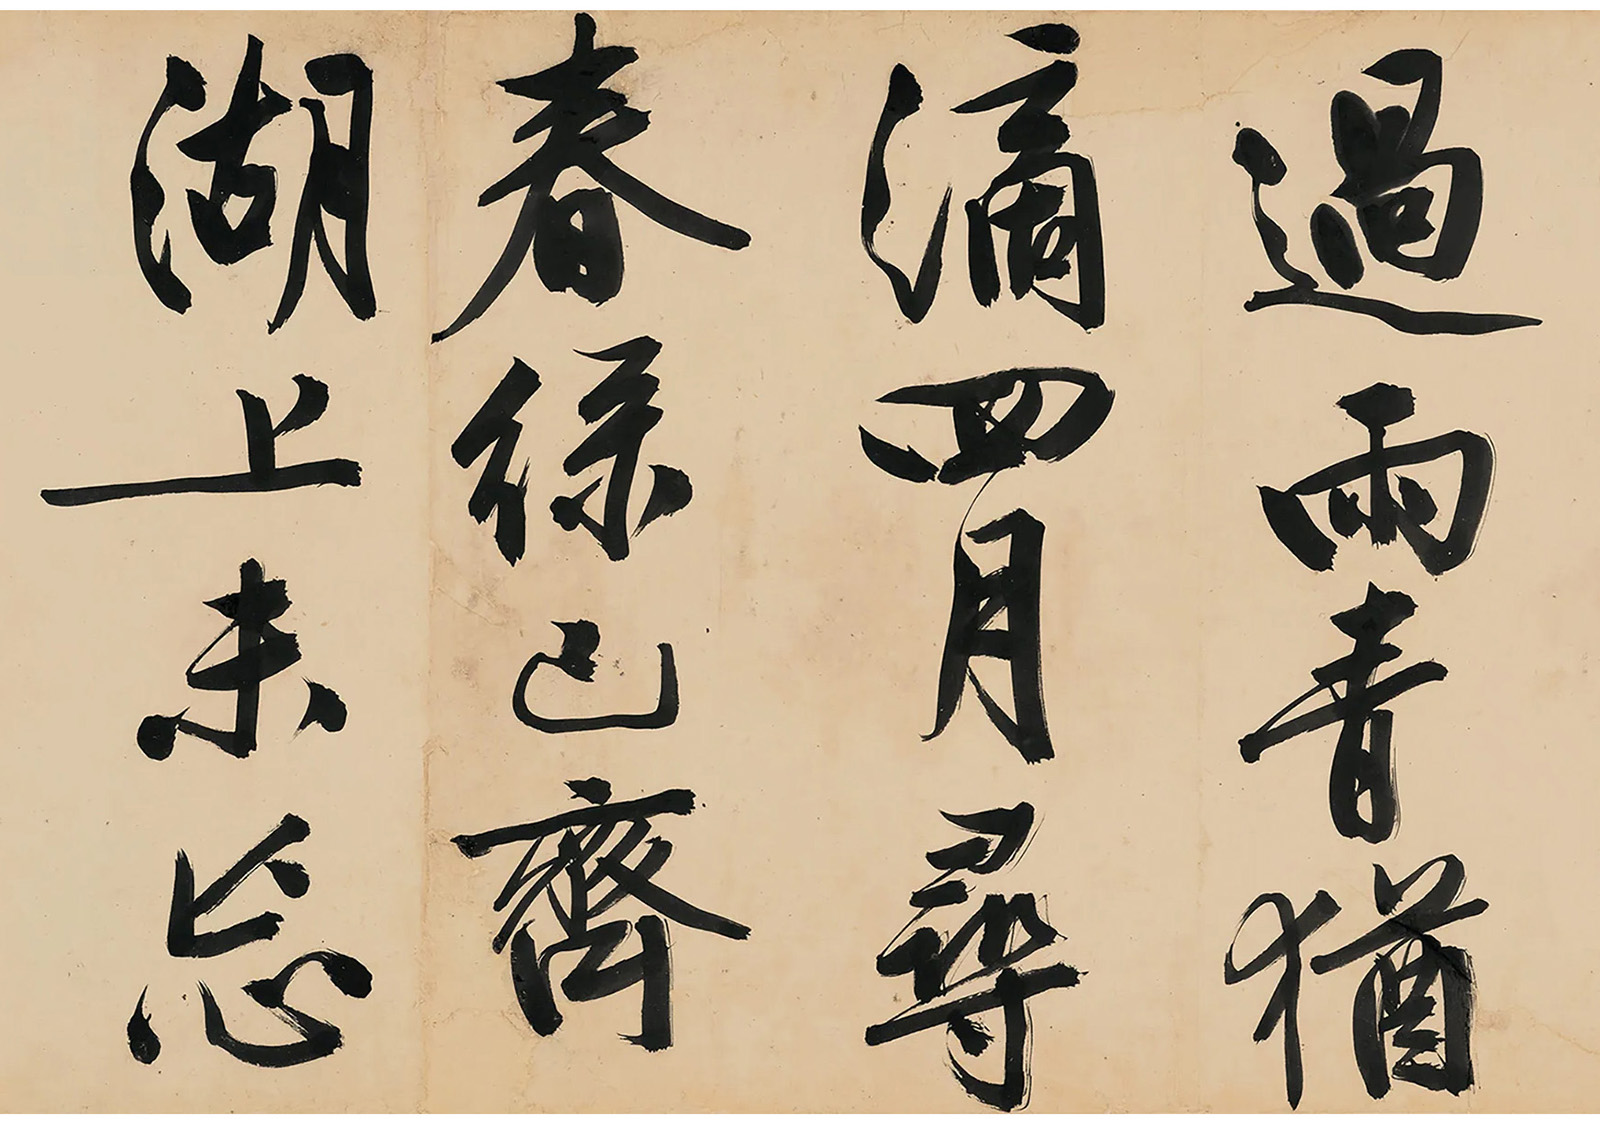 過雨青猶
滴四月尋
春綠已齊
湖上未忘